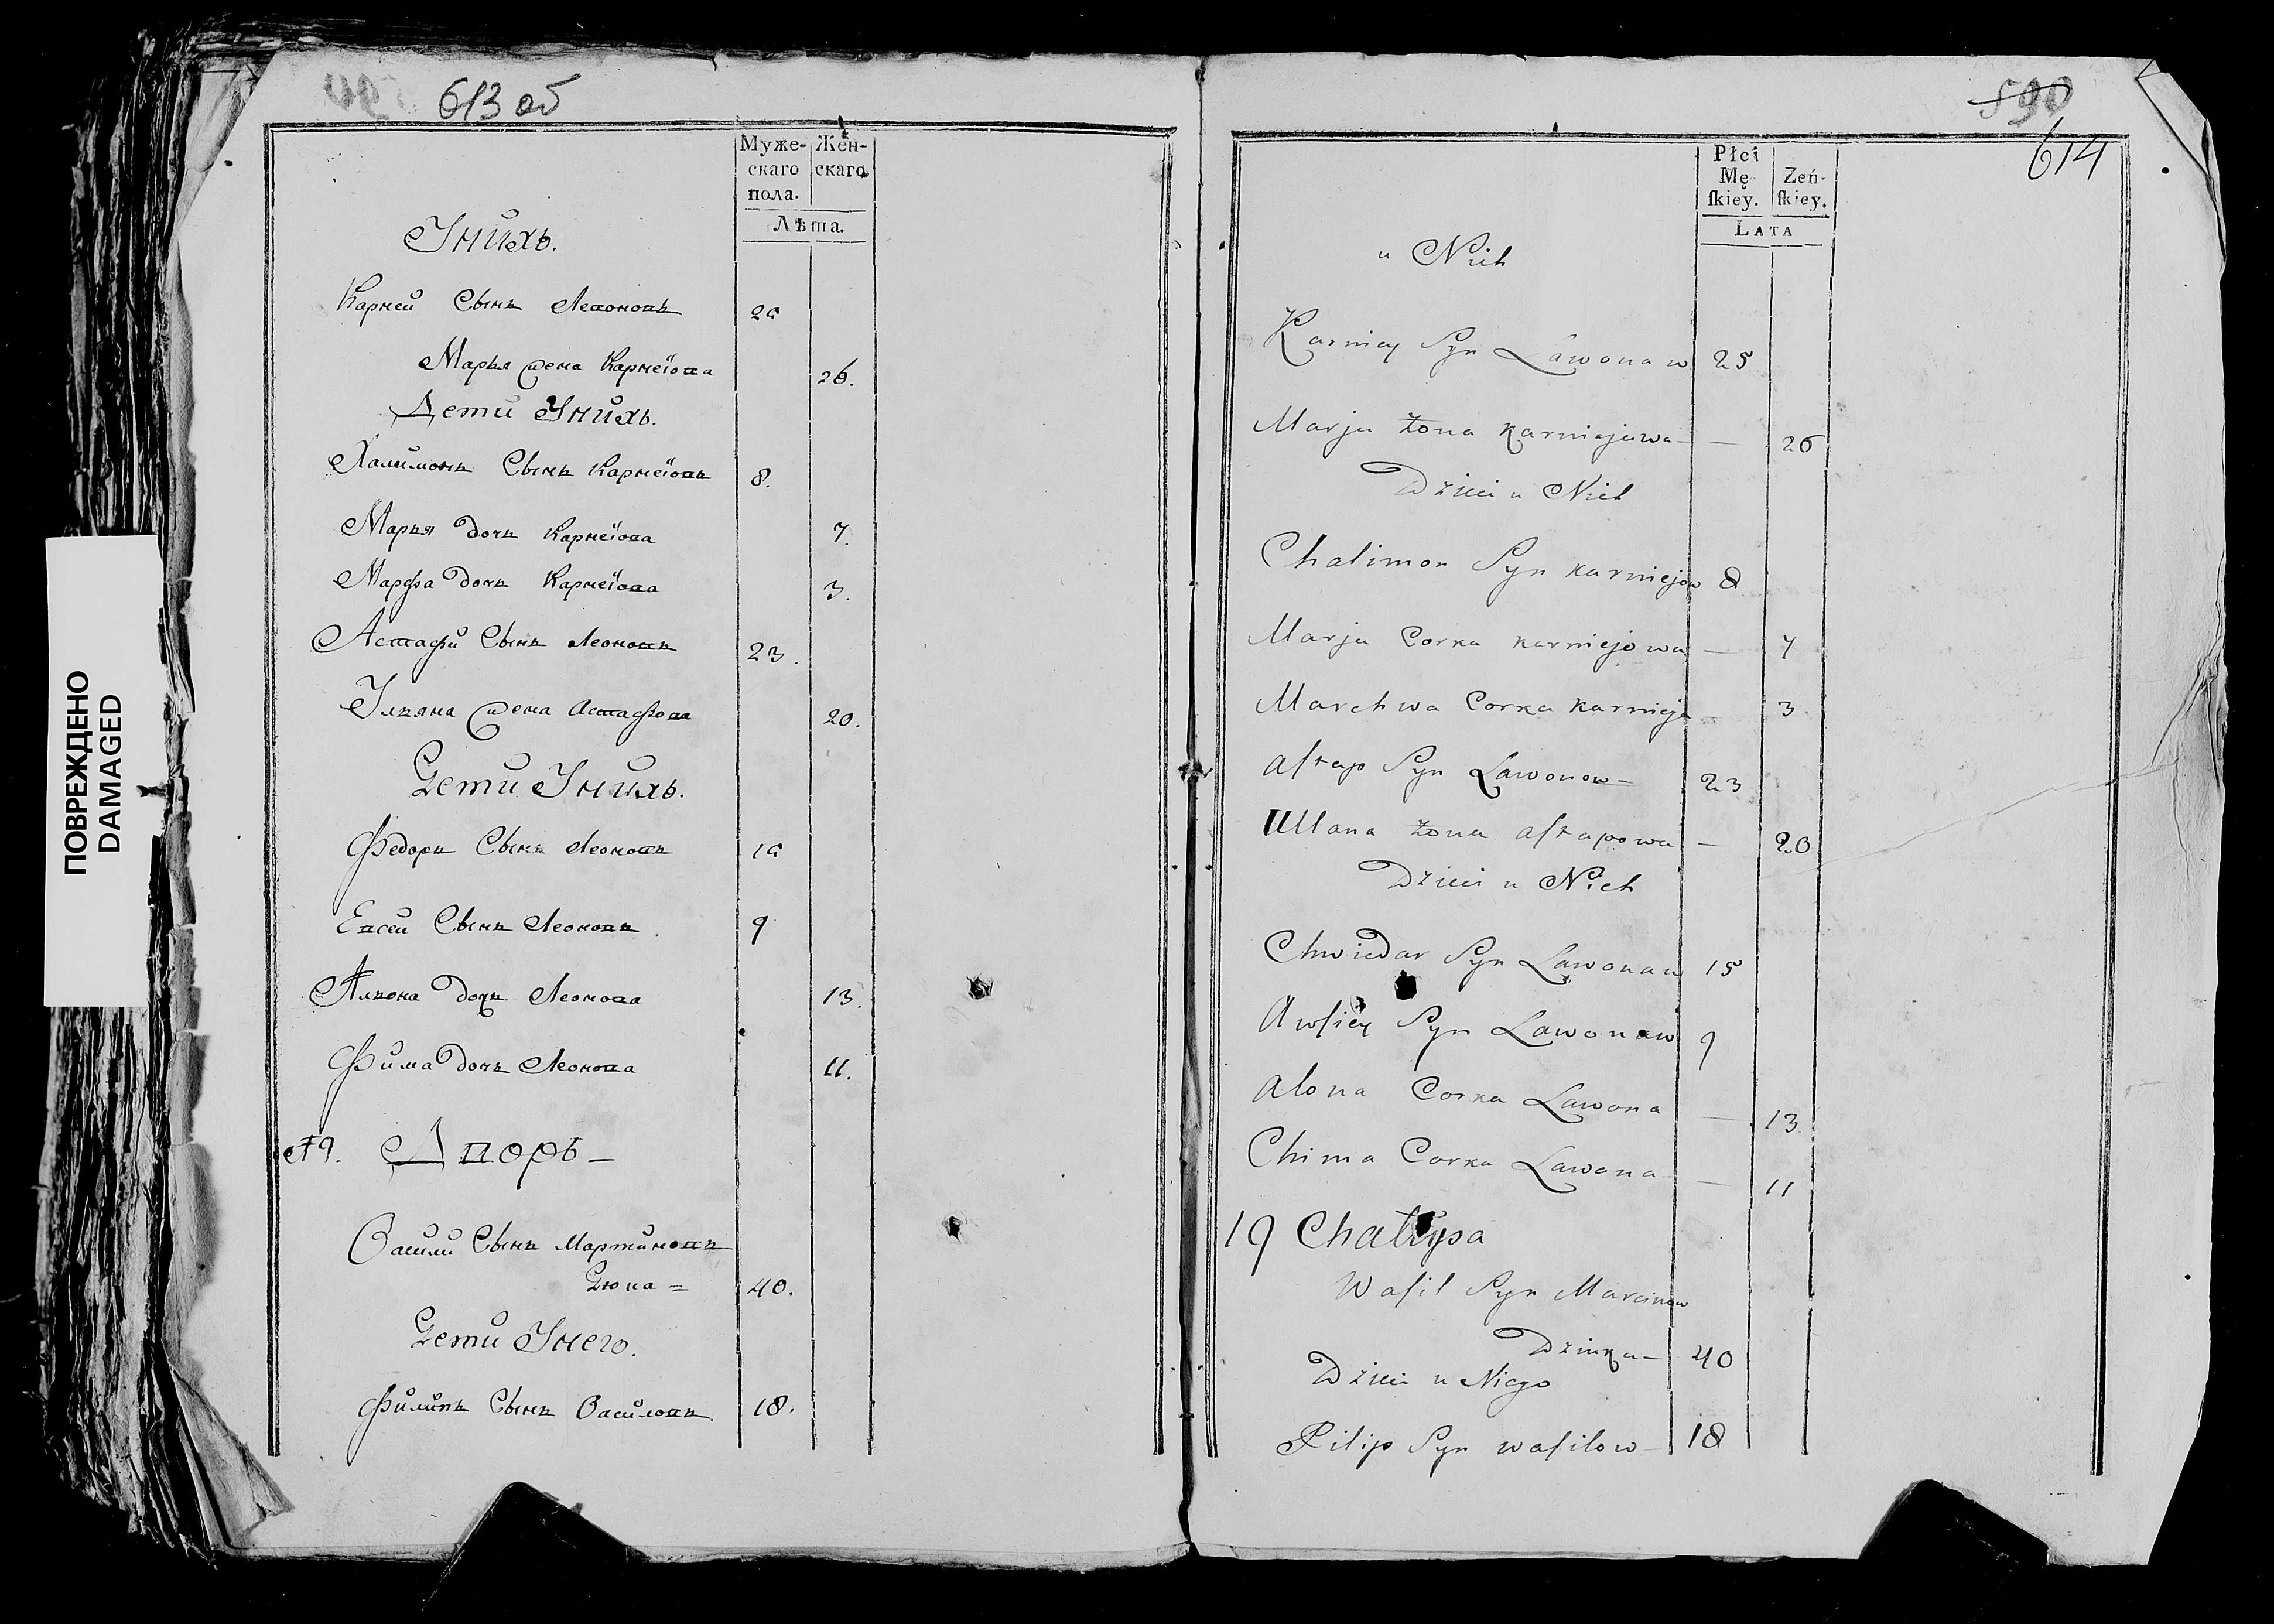 613 об
Муже-
скаго
пола.
Жен-
скаго
Лѣта.
Унихъ.
Карней Сынъ Леоновъ 25
Марья жена Карнеіова 26.
Дети Унихъ.
Халимонъ Сынъ Карнеіовъ 8.
Марья дочь Карнеіова 7.
Марфа дочь Карнеіова 3.
Астафи Сынъ Леоновъ 23.
Ульяна жена Астафова 20.
Дети Унихъ.
Федоръ Сынъ Леоновъ 15
Евсей Сынъ Леоновъ 9
Альона дочь Леонова 13.
Фима дочь Леонова 11.
19. Дворъ —
Васили Сынъ Мартиновъ
Дюка = 40.
Дети Унего.
Филипъ Сынъ Василовъ 18.
ПОВРЕЖДЕНО
DAMAGED
590
614
Płci
Mę-
ſkiey.
Zeń-
ſkiey.
LATA
u Nich
Karniey Syn Lawonaw 25
Marja żona Karniejowa — 26
Dzieci u Nich
Chalimon Syn Karniejow 8
Marja Corka Karniejowa — 7
Marchwa Corka Karnieja — 3
Aſtap Syn Lawonow — 23
Ullana żona Aſtapowa — 20
Dzieci u Nich
Chwiedar Syn Lawonaw 15
Awſiey Syn Lawonaw 9
Alona Corka Lawona — 13
Chima Corka Lawona — 11
19 Chałupa
Waſil Syn Marcinow
Dziuka — 40
Dzieci u Niego
Pilip Syn Waſilow — 18